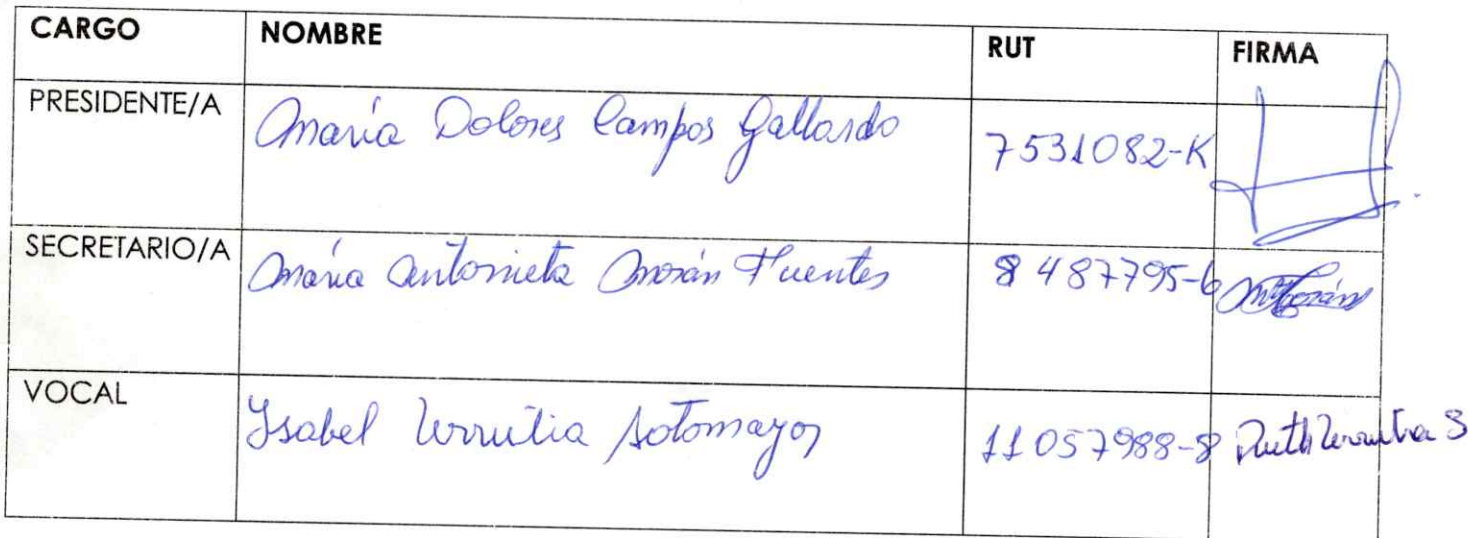 CARGO NOMBRE RUT FIRMA
PRESIDENTE/A María Dolores Campos Gallardo 7531082-K
SECRETARIO/A María Antonieta Morán Fuentes 8487795-6
VOCAL Isabel Urrutia Sotomayor 11057988-8 Ruth Urrutia S